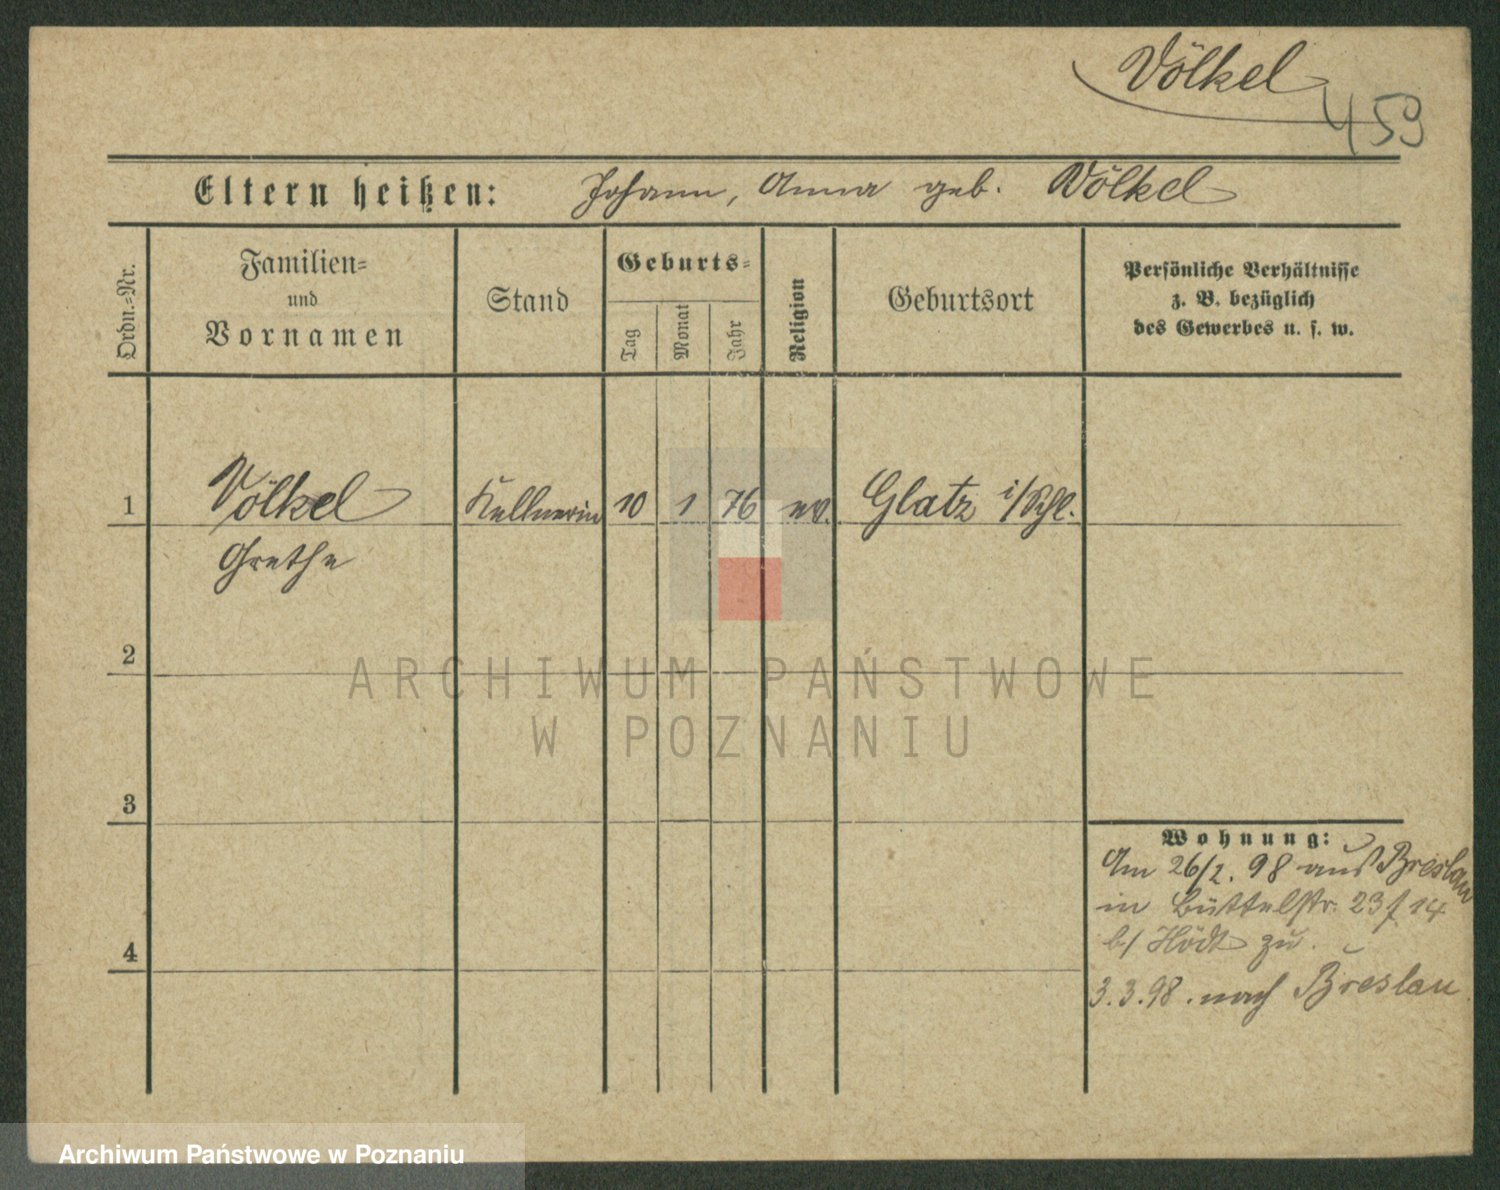 Völkel
459
Eltern heißen: Johann, Anna geb. Völkel
Ordn.=Nr.
Familien=
und
Vornamen
Stand
Geburts=
Tag
Monat
Jahr
Religion
Geburtsort
Persönliche Verhältnisse
z. B. bezüglich
des Gewerbes u. s. w.
1 Völkel Kellnerin 10 1 76 ev. Glatz i/Schl.
Grethe
2
ARCHIWUM PAŃSTWOWE
W POZNANIU
3
Wohnung:
Am 26/2. 98 aus Breslau
in Büttelstr. 23 f 14
4
b/ Hödt zu.
3.3.98. nach Breslau
Archiwum Państwowe w Poznaniu